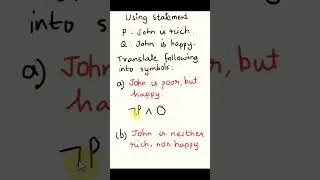 Using statement
P : John is rich.
Q : John is happy.
Translate following
into symbols:
a) John is poor, but
happy.
¬P ∧ Q
(b) John is neither
rich, nor happy.
¬P